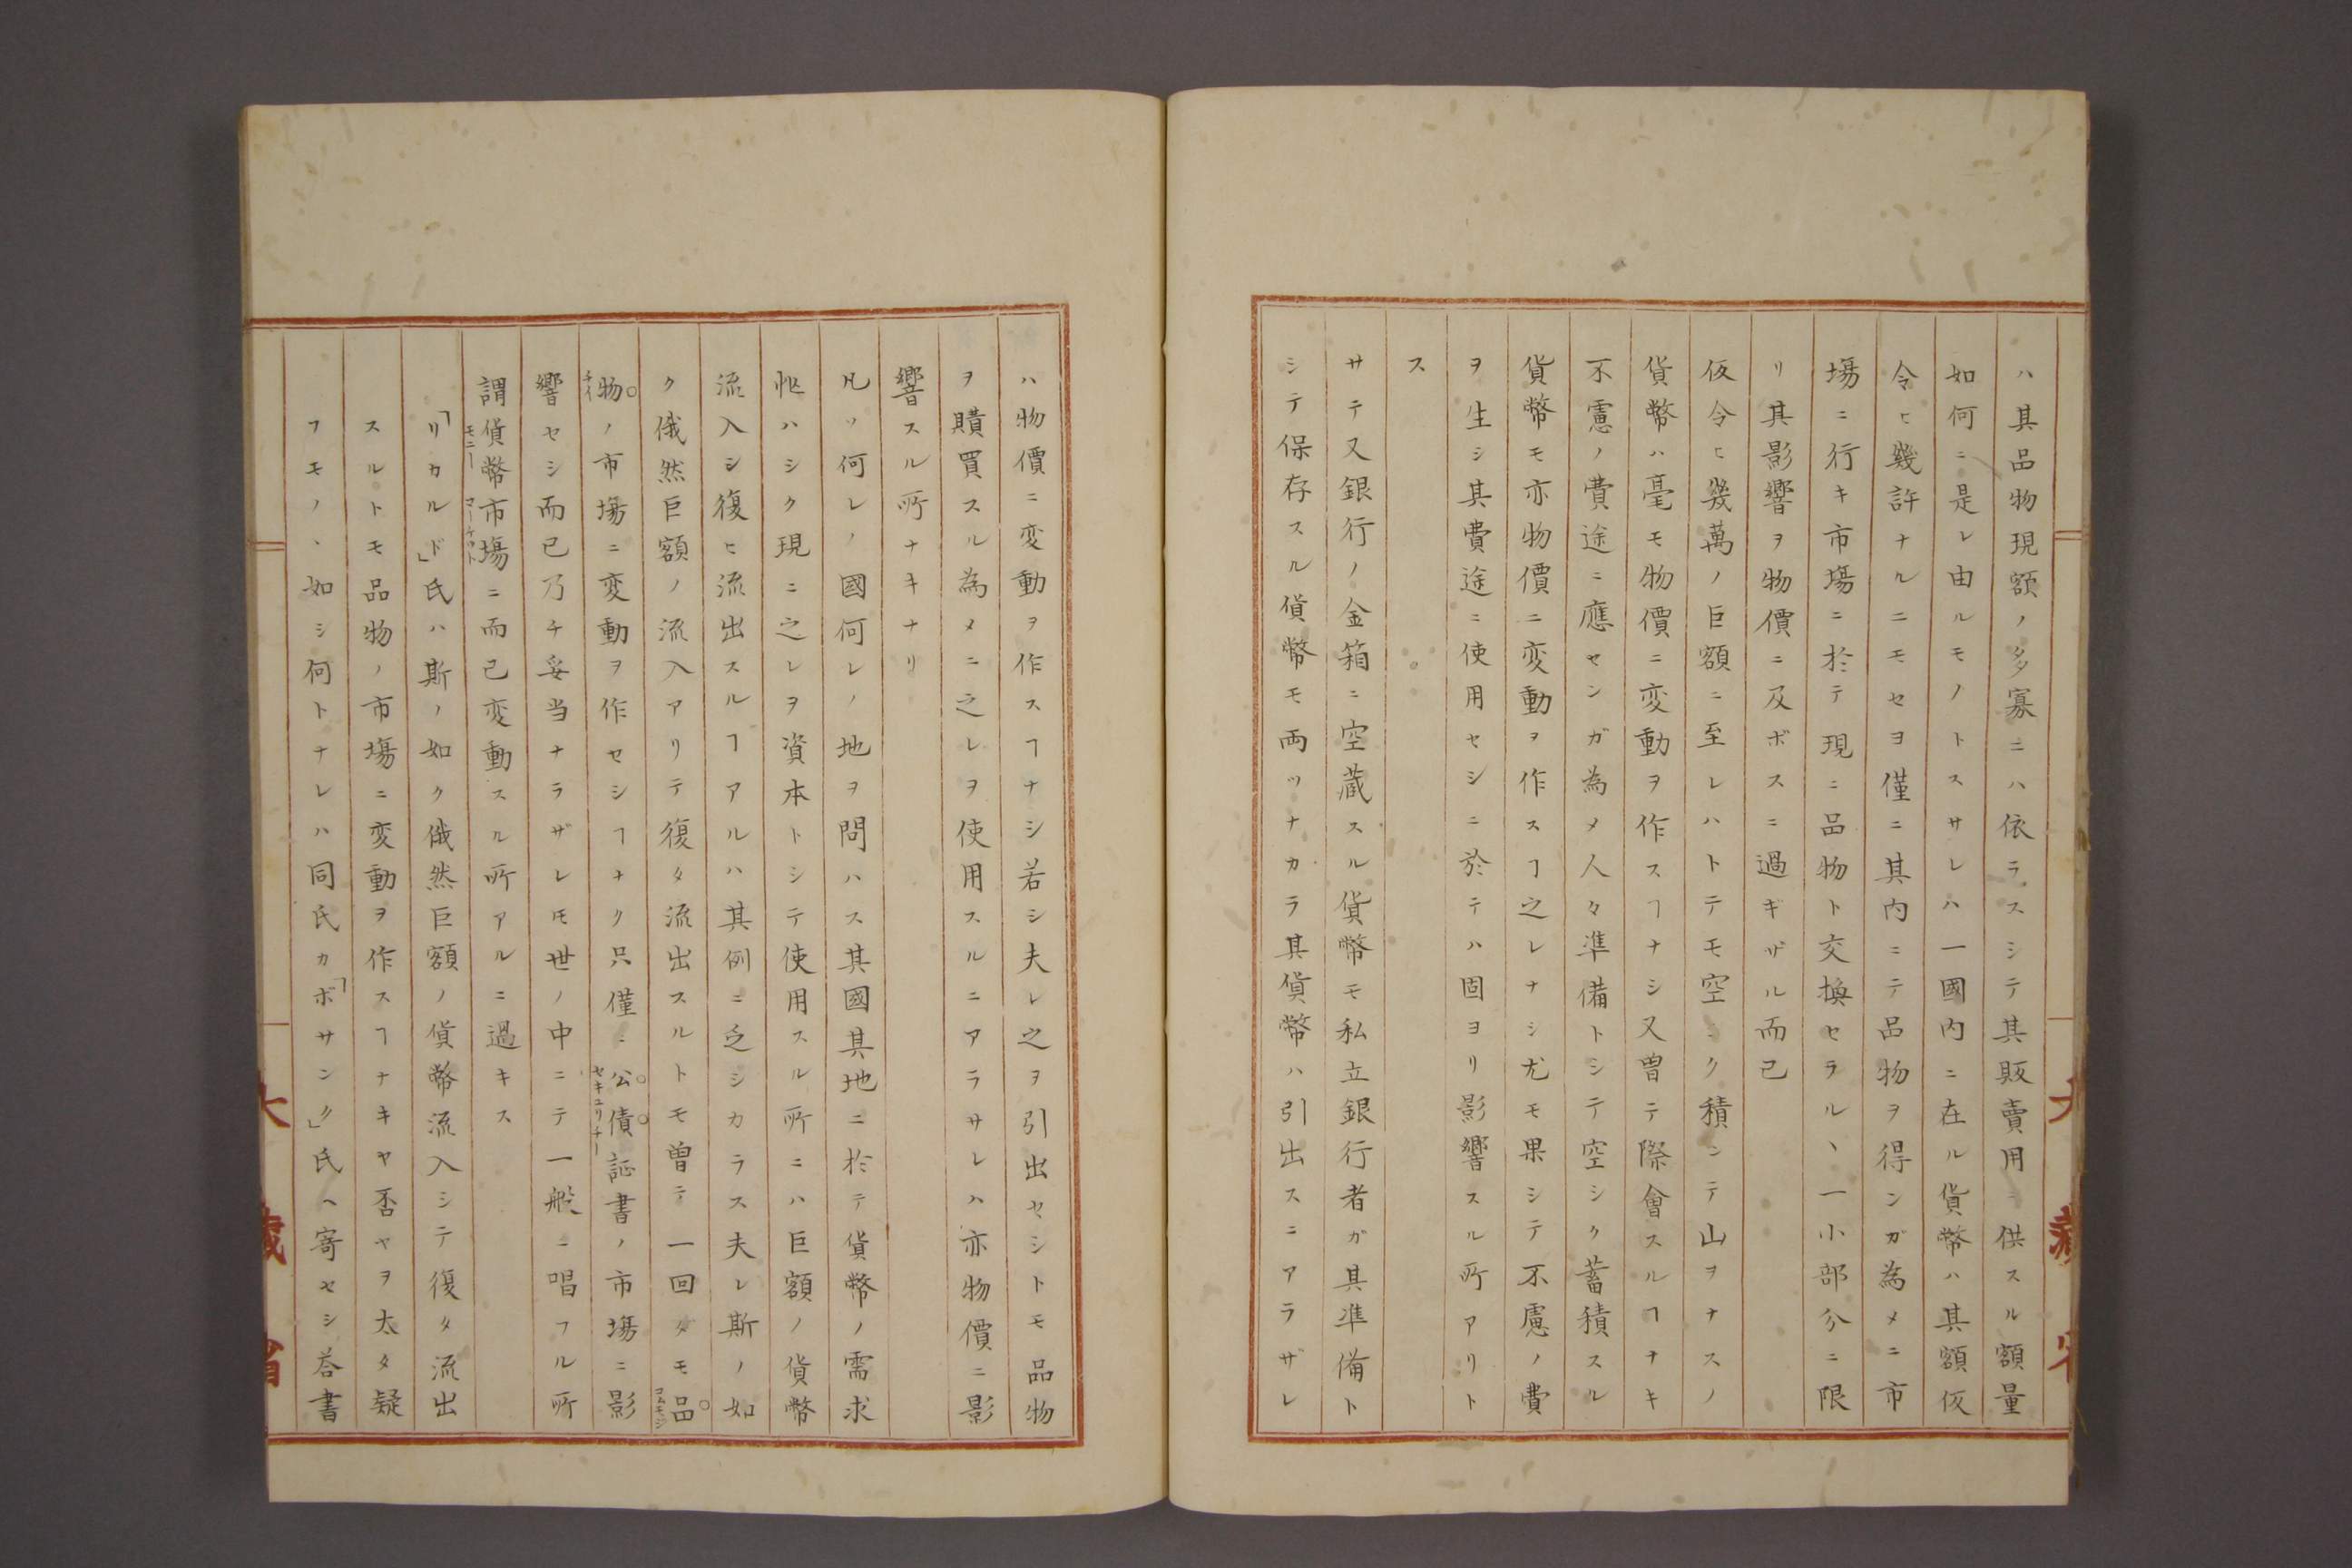 ハ其品物現額ノ多寡ニハ依ラスシテ其販賣用ニ供スル額量
如何ニ是レ由ルモノトスサレハ一國内ニ在ル貨幣ハ其額仮
令ヒ幾許ナルニモセヨ僅ニ其内ニテ品物ヲ得ンガ為メニ市
塲ニ行キ市塲ニ於テ現ニ品物ト交換セラル丶一小部分ニ限
リ其影響ヲ物價ニ及ボスニ過ギザル而已
仮令ヒ幾萬ノ巨額ニ至レハトテモ空シク積ンテ山ヲナスノ
貨幣ハ毫モ物價ニ変動ヲ作スヿナシ又曽テ際會スルヿナキ
不慮ノ費途ニ應センガ為メ人々凖備トシテ空シク蓄積スル
貨幣モ亦物價ニ変動ヲ作スヿ之レナシ尤モ果シテ不慮ノ費
ヲ生シ其費途ニ使用セシニ於テハ固ヨリ影響スル所アリト
ス
サテ又銀行ノ金箱ニ空蔵スル貨幣モ私立銀行者ガ其凖備ト
シテ保存スル貨幣モ両ツナカラ其貨幣ハ引出スニアラザレ
ハ物價ニ変動ヲ作スヿナシ若シ夫レ之ヲ引出セシトモ品物
ヲ購買スル為メニ之レヲ使用スルニアラサレハ亦物價ニ影
響スル所ナキナリ
凡ソ何レノ國何レノ地ヲ問ハス其國其地ニ於テ貨幣ノ需求
忙ハシク現ニ之レヲ資本トシテ使用スル所ニハ巨額ノ貨幣
流入シ復ヒ流出スルヿアルハ其例ニ乏シカラス夫レ斯ノ如
ク俄然巨額ノ流入アリテ復タ流出スルトモ曽テ一回ダモ品
物ノ市塲ニ変動ヲ作セシヿナク只僅ニ公債証書ノ市塲ニ影
響セシ而已乃チ妥当ナラザレモ世ノ中ニテ一般ニ唱フル所
謂貨幣市塲ニ而已変動スル所アルニ過キス
「リカルド」氏ハ斯ノ如ク俄然巨額ノ貨幣流入シテ復タ流出
スルトモ品物ノ市塲ニ変動ヲ作スヿナキヤ否ヤヲ太タ疑
フモノヽ如シ何トナレハ同氏カ「ボサンク」氏ヘ寄セシ荅書
コムモジ
チイ
セキユリチー
モニー
マーケット
大藏省
大藏省